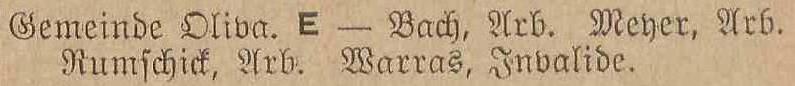 Gemeinde Oliva. E — Bach, Arb. Meyer, Arb.
Rumschick, Arb. Warras, Invalide.